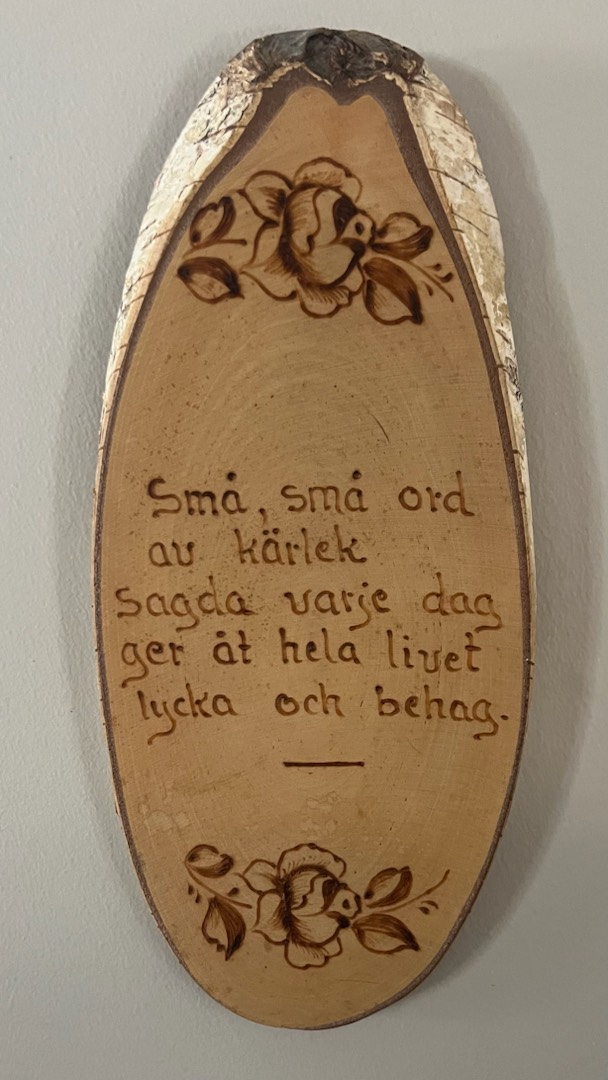 Små, små ord
av kärlek
sagda varje dag
ger åt hela livet
lycka och behag.